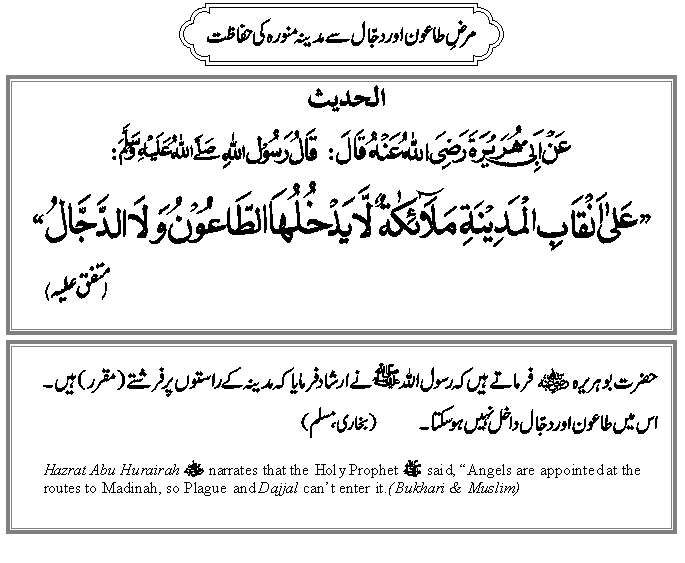 مرضِ طاعون اور دجّال سے مدینہ منورہ کی حفاظت
الحدیث
عَنْ اَبِیْ هُرَیْرَةَ رَضِیَ اللّٰهُ عَنْهُ قَالَ: قَالَ رَسُوْلُ اللّٰهِ صَلَّی اللّٰهُ عَلَیْهِ وَسَلَّمَ:
”عَلٰی اَنْقَابِ الْمَدِیْنَةِ مَلَآئِکَةٌ لَّا یَدْخُلُهَا الطَّاعُوْنُ وَلَا الدَّجَّالُ“
(متفق علیہ)
حضرت بوہریرہ ؓ فرماتے ہیں کہ رسول اللہ ﷺ نے ارشاد فرمایا کہ مدینہ کے راستوں پر فرشتے (مقرر) ہیں۔
اس میں طاعون اور دجال داخل نہیں ہو سکتا۔ (بخاری، مسلم)
Hazrat Abu Hurairah ؓ narrates that the Holy Prophet ﷺ said, “Angels are appointed at the
routes to Madinah, so Plague and Dajjal can’t enter it.(Bukhari & Muslim)